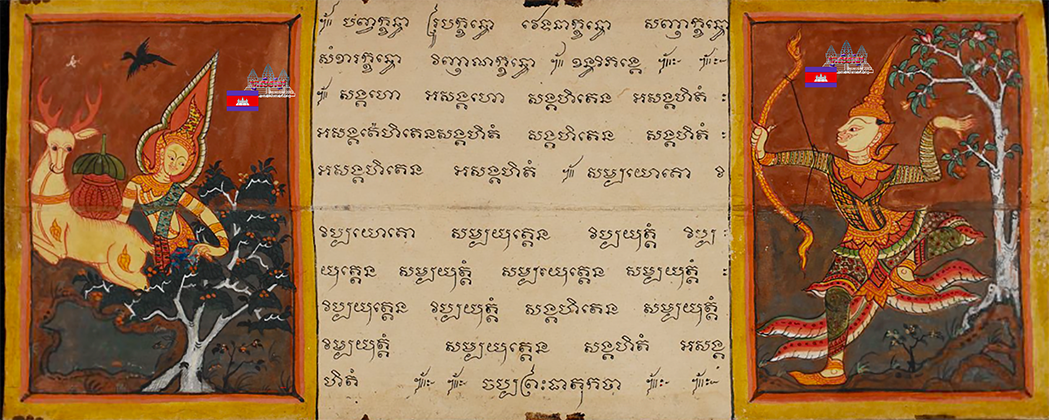 ៚ បញ្ចក្ខន្ធោ រូបក្ខន្ធោ វេទនាក្ខន្ធោ សញ្ញាក្ខន្ធោ
សំខារក្ខន្ធោ វិញ្ញាណក្ខន្ធោ ៚ ៚ ៚
៚ សង្គហោ អសង្គហោ សង្គហិតេន អសង្គហិតំ
អសង្គហិតេនសង្គហិតំ សង្គហិតេន សង្គហិតំ
អសង្គហិតេន អសង្គហិតំ ៚ សម្បយោគោ វិ
វិប្បយោគោ សម្បយុត្តេន វិប្បយុត្តំ វិប្ប
យុត្តេន សម្បយុត្តំ សម្បយុត្តេន សម្បយុត្តំ
វិប្បយុត្តេន វិប្បយុត្តំ សង្គហិតេន សម្បយុត្តំ
វិប្បយុត្តំ សម្បយុត្តេន សង្គហិតំ អសង្គ
ហិតំ ៚ ៚ ចប្បព្រះធាតុកថា ៚ ៚